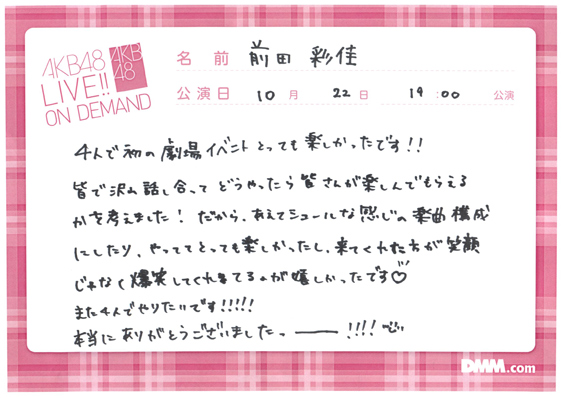 AKB48
LIVE!!
ON DEMAND
AKB
48
名前 前田 彩佳
公演日 10月 22日 19:00 公演
4人で初の劇場イベントとっても楽しかったです!!
皆で沢山話し合って どうやったら皆さんが楽しんでもらえる
かを考えました! だから、あえてシュールな感じの楽曲構成
にしたり、やっててとっても楽しかったし、来てくれた方が笑顔
じゃなく爆笑してくれてるのが嬉しかったです♡
また4人でやりたいです!!!!!
本当にありがとうございましたっ ―― !!!!
DMM.com